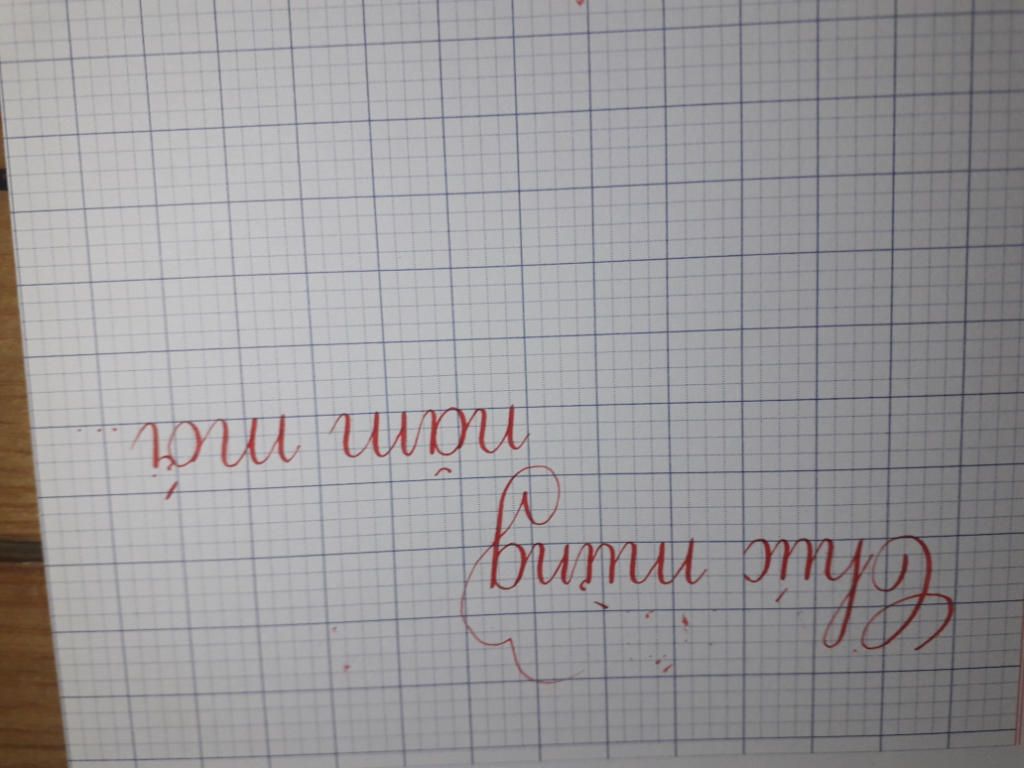 Chúc mừng
năm mới...